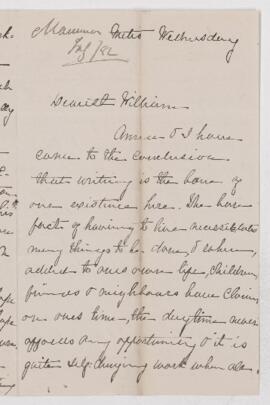 Metis Wednesday
Dearest William
Annie & I have
come to the conclusion
that writing is the bane of
our existence here. The bare
fact of having to live necessitates
many things to be done & when
added to ones own life, children,
friends & neighbours have claims
on ones time, the daytime never
affords any opportunity & it is
quite self-denying work when